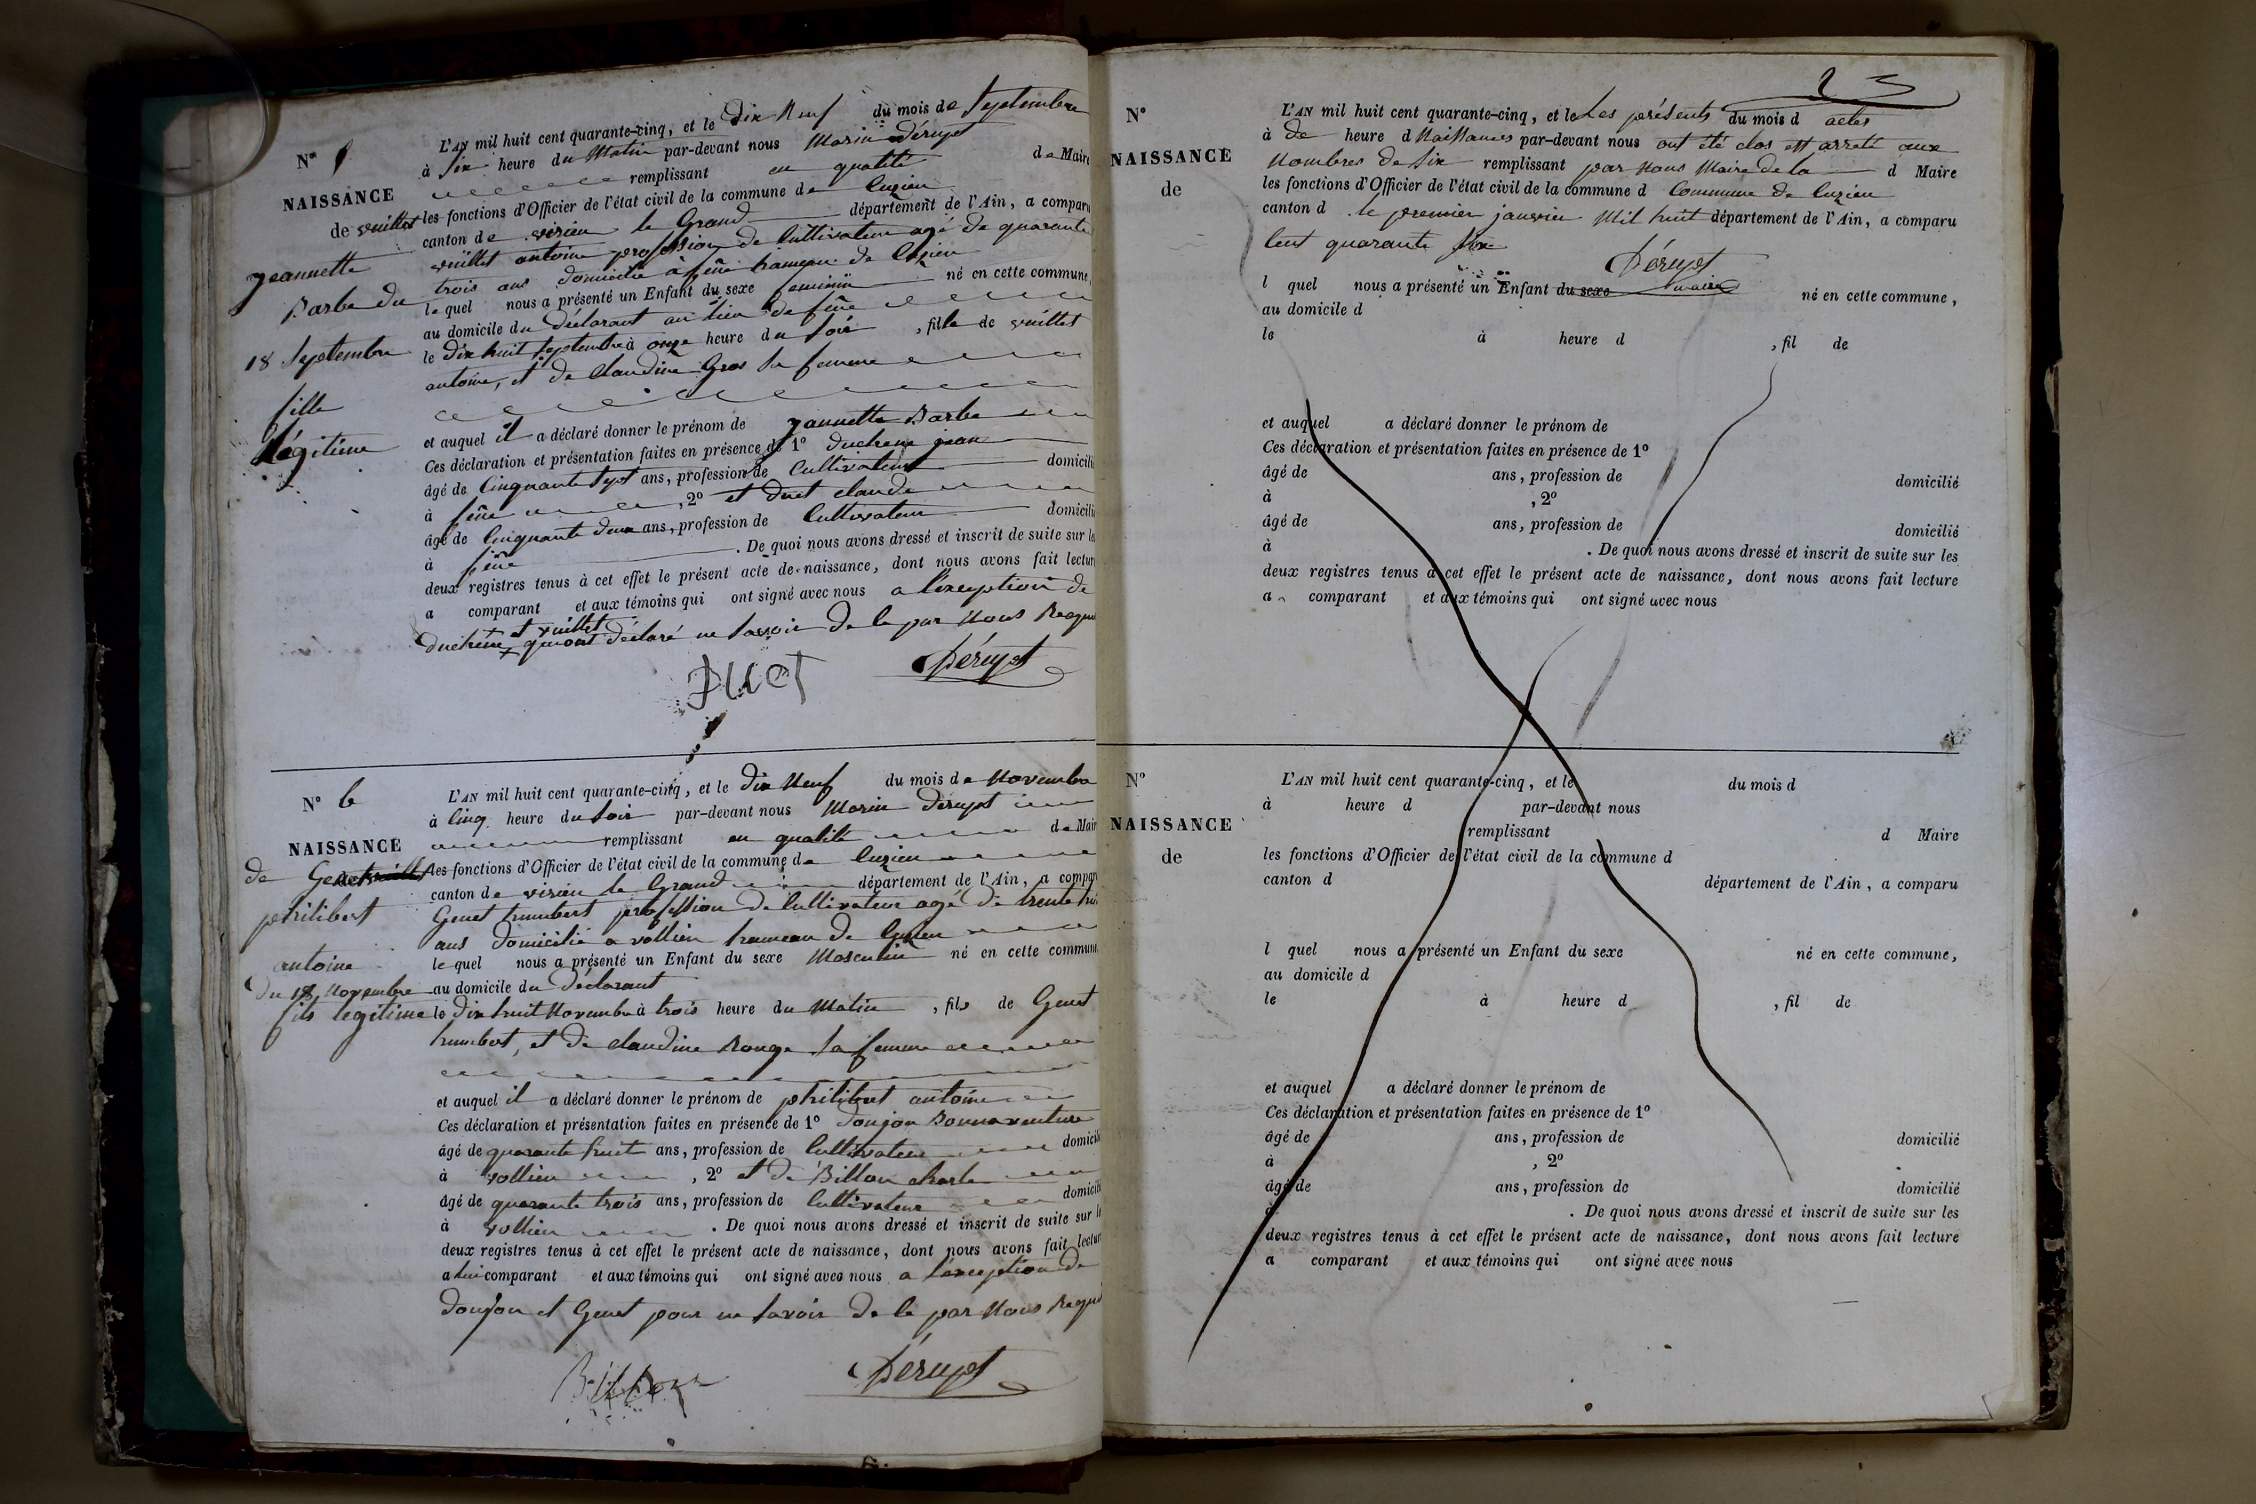 L'AN mil huit cent quarante-cinq, et le dix Neuf du mois de Septembre
N°
à Six heure du Matin par-devant nous Marin Déruyet
remplissant en qualité de Maire
NAISSANCE
les fonctions d'Officier de l'état civil de la commune de Cuzieu
de vuillet
canton de virieu le Grand département de l'Ain, a comparu
jeannette
vuillet antoine profession de Cultivateur agé de quarante
trois ans domicilié à hameau de Cuzieu
Barbe du
le quel nous a présenté un Enfant du sexe feminin né en cette commune,
au domicile du Déclarant au lieu de
18 Septembre
le dix huit Septembre à onze heure du Soir , fille de vuillet
antoine, et de Claudine Gros Sa femme
fille
légitime
et auquel il a déclaré donner le prénom de jannette Barbe
Ces déclaration et présentation faites en présence de 1° duchene jean
âgé de Cinquante Sept ans, profession de Cultivateur domicilié
à , 2° et duet claude
âgé de Cinquante deux ans, profession de Cultivateur domicilié
à . De quoi nous avons dressé et inscrit de suite sur les
deux registres tenus à cet effet le présent acte de naissance, dont nous avons fait lecture
a comparant et aux témoins qui ont signé avec nous a l'exception de
et vuillet
duchene qui ont déclaré ne Savoir de le par Nous Requis
DUET Déruyet
N° 6
L'AN mil huit cent quarante-cinq, et le dix Neuf du mois de Novembre
à Cinq heure du Soir par-devant nous Marin Déruyet
remplissant en qualité de Maire
NAISSANCE
les fonctions d'Officier de l'état civil de la commune de Cuzieu
de Genet
canton de virieu le Grand département de l'Ain, a comparu
philibert
Genet humbert profession de Cultivateur agé de trente huit
ans domicilié a vollien hameau de Cuzieu
antoine
le quel nous a présenté un Enfant du sexe Masculin né en cette commune
du 18 Novembre
au domicile du Déclarant
fils legitime
le dix huit Novembre à trois heure du Matin , fils de Genet
humbert, et de claudine Rouge Sa femme
et auquel il a déclaré donner le prénom de philibert antoine
Ces déclaration et présentation faites en présence de 1° doujon Bonnaventure
âgé de quarante huit ans, profession de Cultivateur domicilié
à vollien , 2° et de Billon charle
âgé de quarante trois ans, profession de Cultivateur domicilié
à vollien . De quoi nous avons dressé et inscrit de suite sur les
deux registres tenus à cet effet le présent acte de naissance, dont nous avons fait lecture
a lui comparant et aux témoins qui ont signé avec nous a l'exception de
doujon et Genet pour ne Savoir de le par Nous Requis
Billon Déruyet
N°
L'AN mil huit cent quarante-cinq, et le Les présents du mois d actes
à de heure d Naissances par-devant nous ont été clos et arreté aux
NAISSANCE
Nombres de Six remplissant par Nous Maire de la d Maire
de
les fonctions d'Officier de l'état civil de la commune d Commune de Cuzieu
canton d le premier janvier Mil huit département de l'Ain, a comparu
Cent quarante Six
Déruyet
maire
l quel nous a présenté un Enfant du sexe né en cette commune,
au domicile d
le à heure d , fil de
et auquel a déclaré donner le prénom de
Ces déclaration et présentation faites en présence de 1°
âgé de ans, profession de domicilié
à , 2°
âgé de ans, profession de domicilié
à . De quoi nous avons dressé et inscrit de suite sur les
deux registres tenus à cet effet le présent acte de naissance, dont nous avons fait lecture
a comparant et aux témoins qui ont signé avec nous
N°
L'AN mil huit cent quarante-cinq, et le du mois d
à heure d par-devant nous
NAISSANCE
remplissant d Maire
de
les fonctions d'Officier de l'état civil de la commune d
canton d département de l'Ain, a comparu
l quel nous a présenté un Enfant du sexe né en cette commune,
au domicile d
le à heure d , fil de
et auquel a déclaré donner le prénom de
Ces déclaration et présentation faites en présence de 1°
âgé de ans, profession de domicilié
à , 2°
âgé de ans, profession de domicilié
à . De quoi nous avons dressé et inscrit de suite sur les
deux registres tenus à cet effet le présent acte de naissance, dont nous avons fait lecture
a comparant et aux témoins qui ont signé avec nous